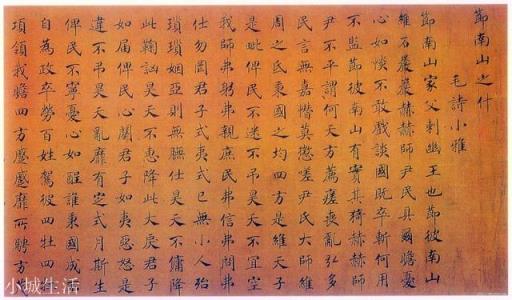 節南山之什
毛詩小雅
節南山家父刺幽王也節彼南山
維石巖巖赫赫師尹民具爾瞻憂
心如惔不敢戲談國既卒斬何用
不監節彼南山有實其猗赫赫師
尹不平謂何天方薦瘥喪亂弘多
民言無嘉憯莫懲嗟尹氏大師維
周之氐秉國之均四方是維天子
是毗俾民不迷不弔昊天不宜空
我師弗躬弗親庶民弗信弗問弗
仕勿罔君子式夷式已無小人殆
瑣瑣姻亞則無膴仕昊天不傭降
此鞠訩昊天不惠降此大戾君子
如届俾民心闋君子如夷惡怒是
違不弔昊天亂靡有定式月斯生
俾民不寧憂心如酲誰秉國成不
自為政卒勞百姓駕彼四牡四牡
項領我瞻四方蹙蹙靡所騁方
小城生活